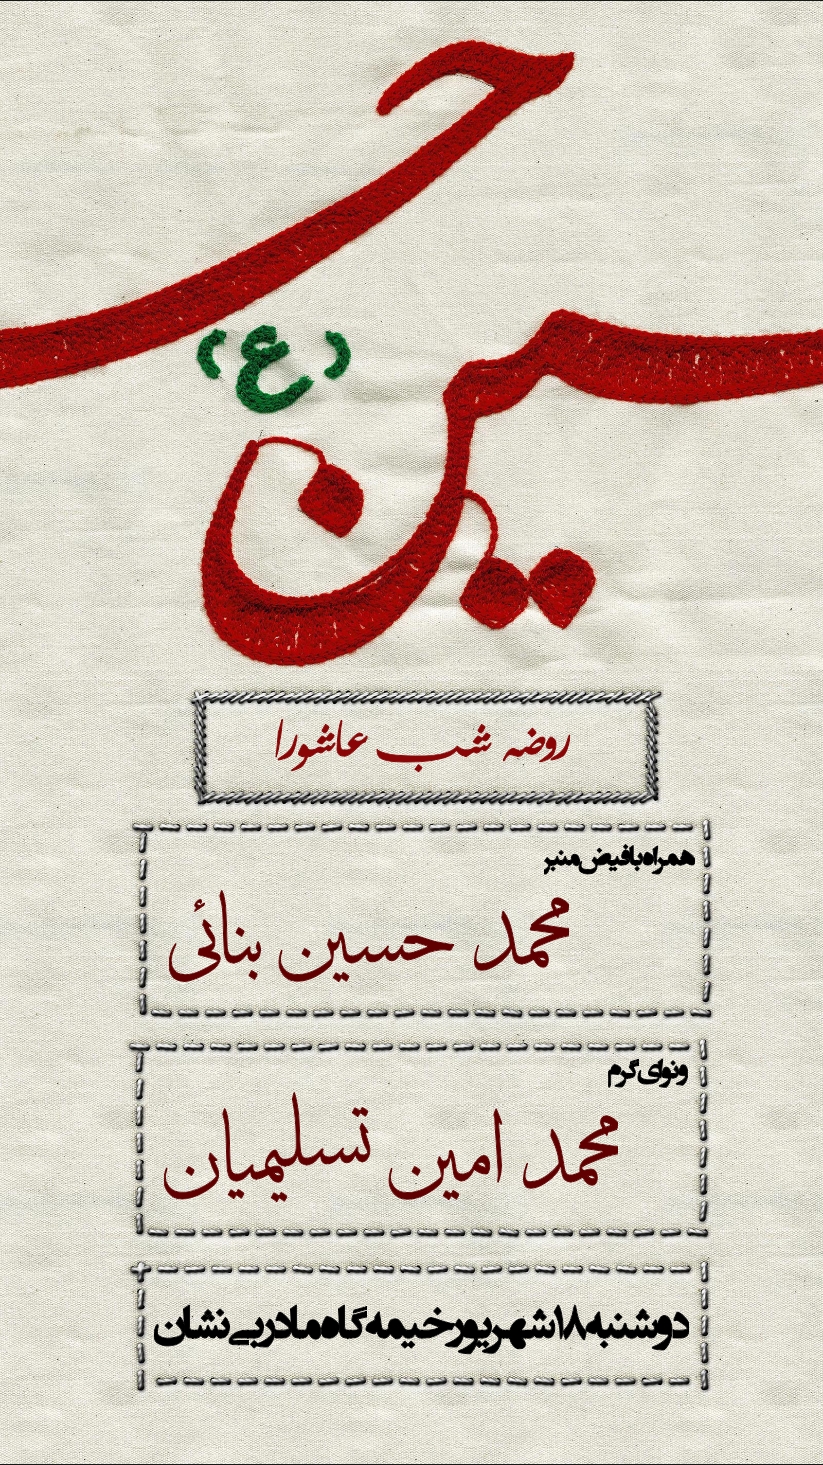 حسین
(ع)
روضه شب عاشورا
همراه با فیض منبر
محمد حسین بنائی
ونوای گرم
محمد امین تسلیمیان
دوشنبه ۱۸ شهریور خیمه گاه مادر بی نشان